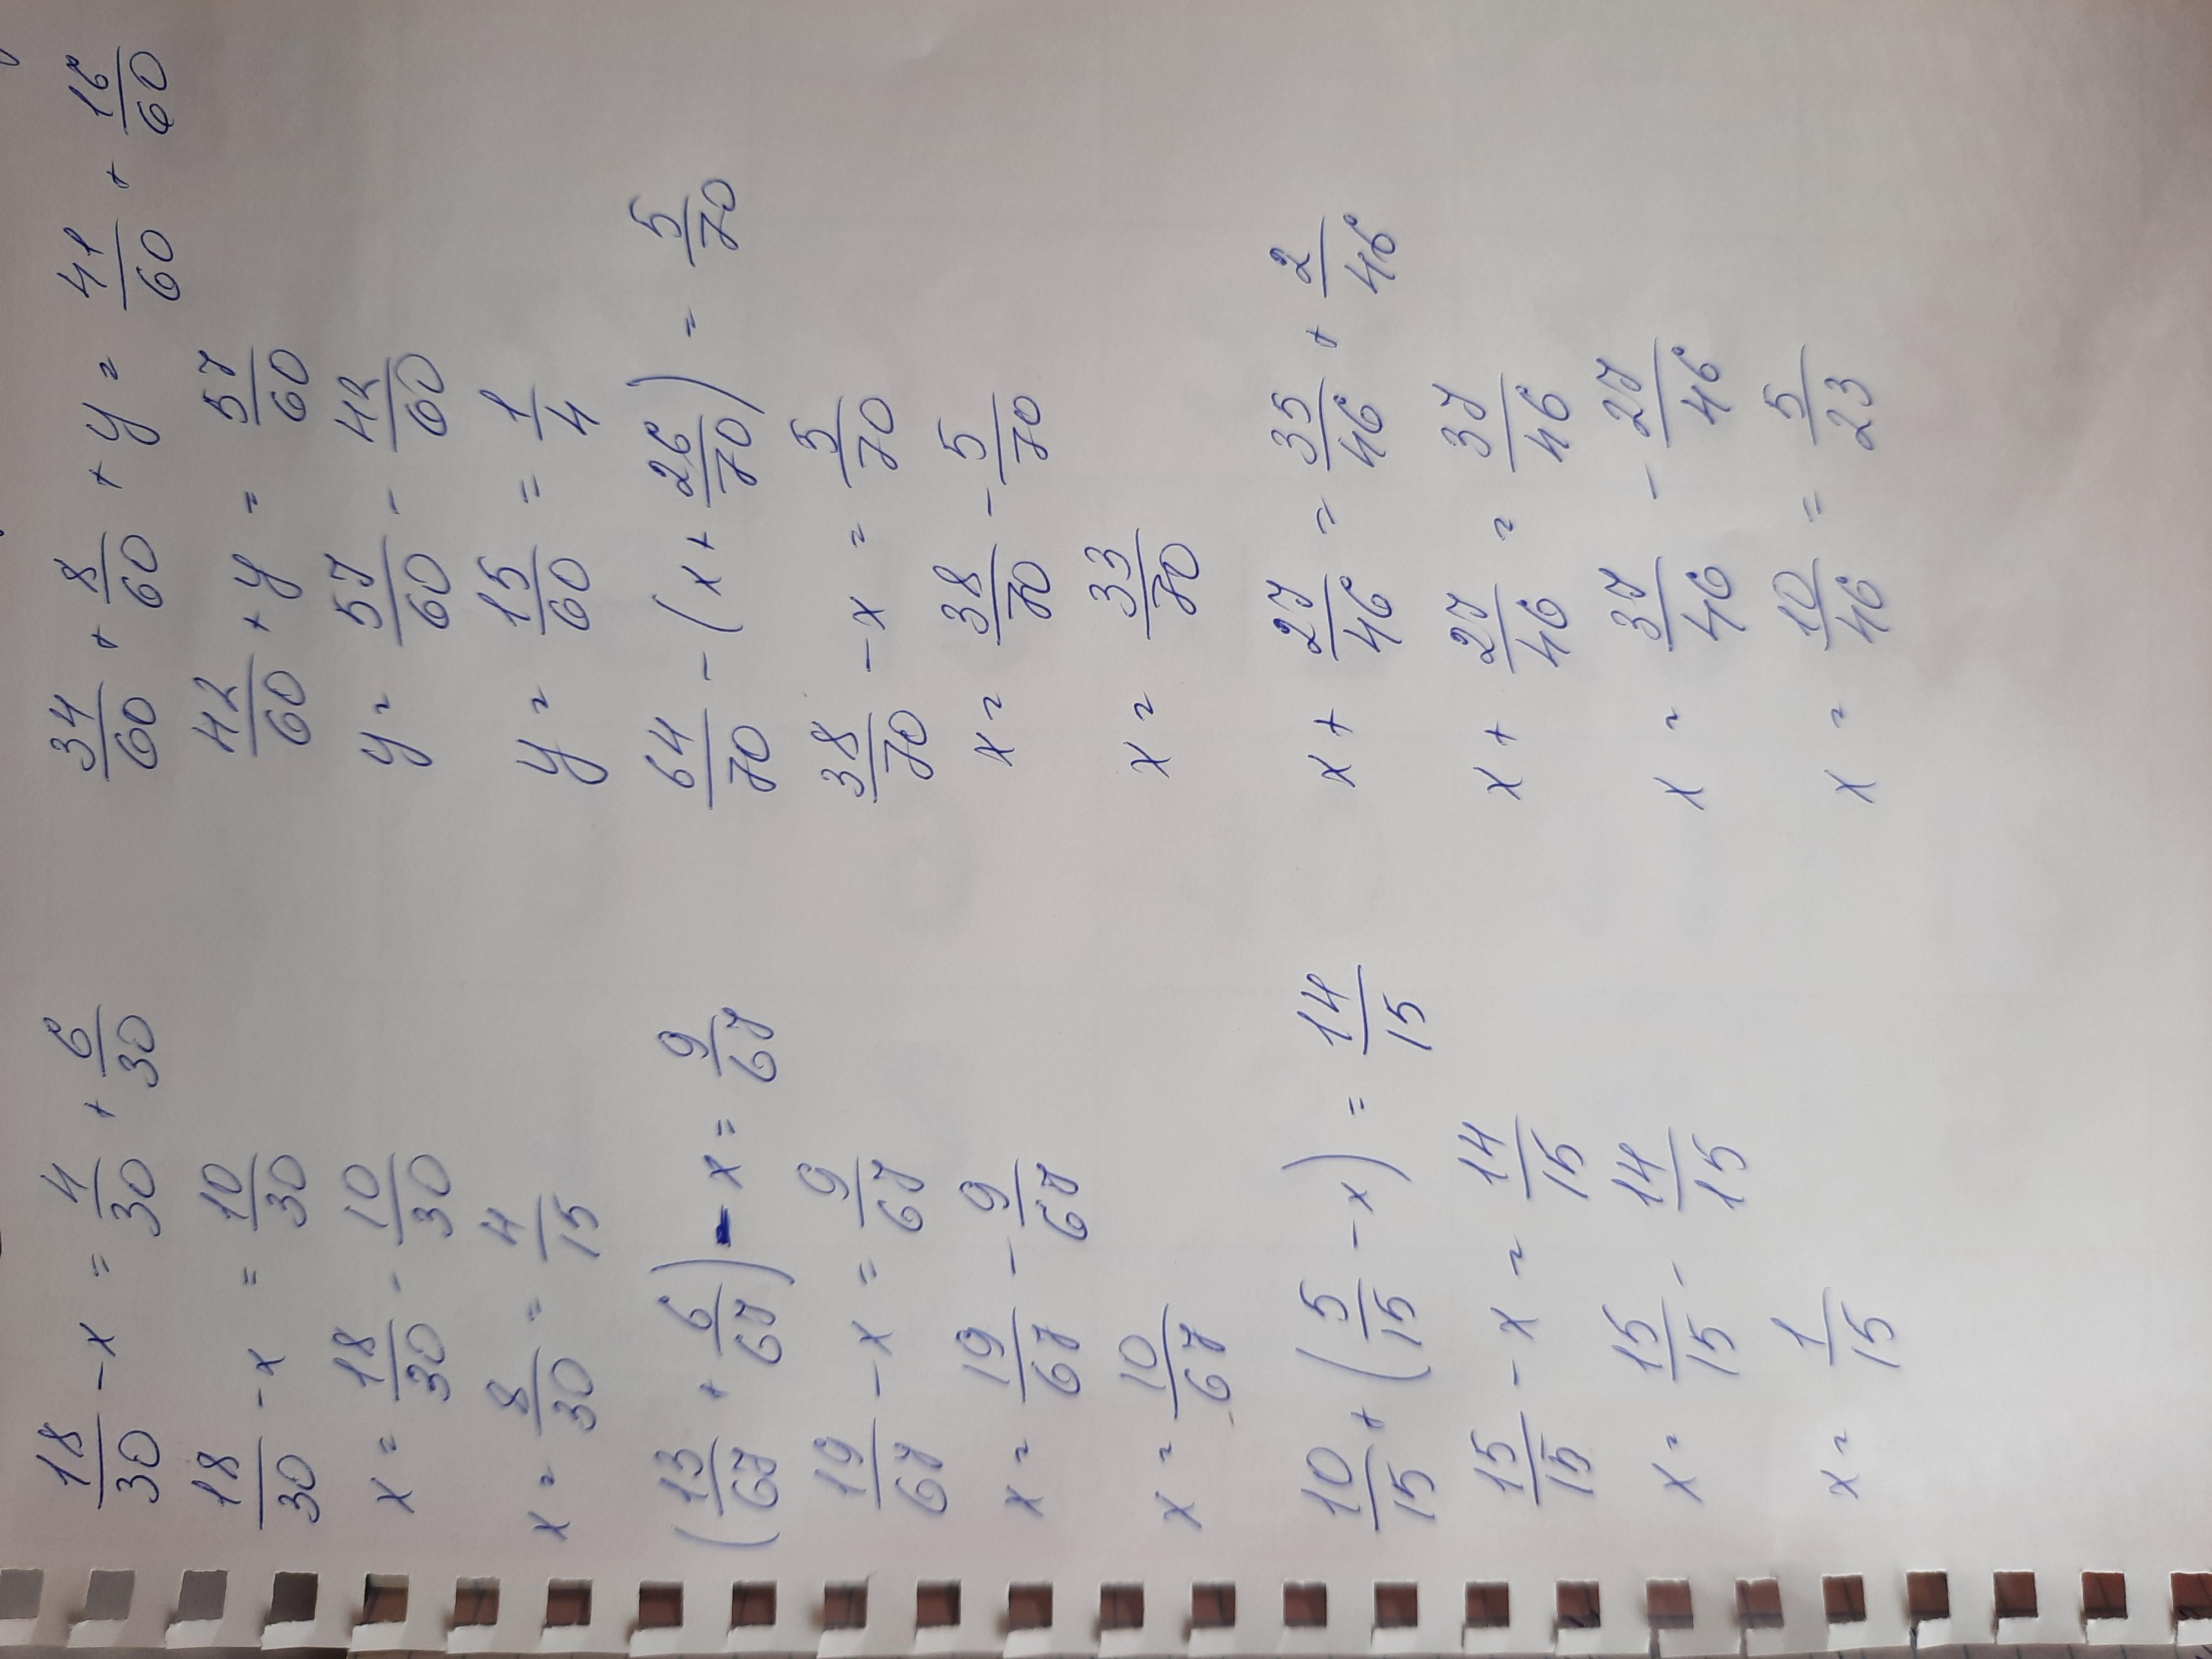 18/30 - x = 4/30 + 6/30
18/30 - x = 10/30
x = 18/30 - 10/30
x = 8/30 = 4/15
(13/67 + 6/67) - x = 9/67
19/67 - x = 9/67
x = 19/67 - 9/67
x = 10/67
10/15 + (5/15 - x) = 14/15
15/15 - x = 14/15
x = 15/15 - 14/15
x = 1/15
34/60 + 8/60 + y = 41/60 + 16/60
42/60 + y = 57/60
y = 57/60 - 42/60
y = 15/60 = 1/4
64/70 - (x + 26/70) = 5/70
38/70 - x = 5/70
x = 38/70 - 5/70
x = 33/70
x + 27/46 = 35/46 + 2/46
x + 27/46 = 37/46
x = 37/46 - 27/46
x = 10/46 = 5/23